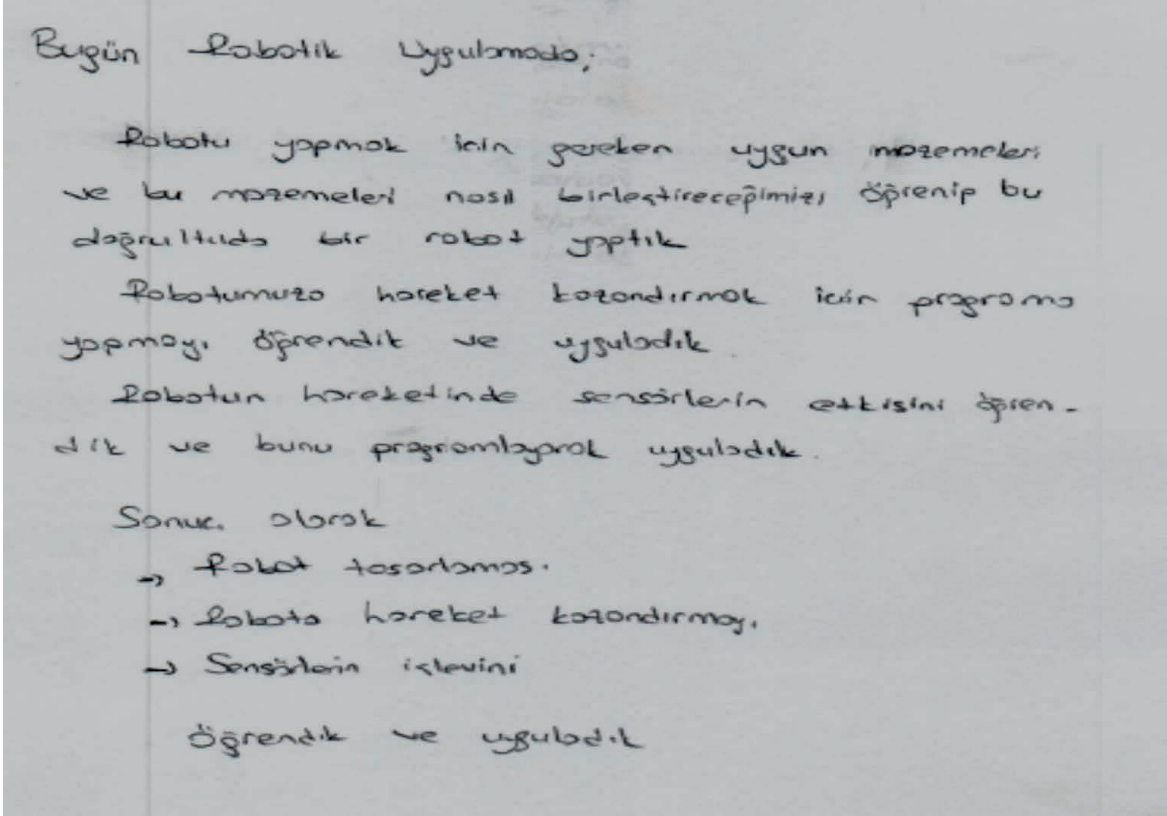 Bugün Robotik Uygulamada;
Robotu yapmak için gereken uygun mazemeleri
ve bu mazemeleri nasıl birleştireceğimizi öğrenip bu
doğrultuda bir robot yaptık
Robotumuza hareket kazandırmak için programa
yapmayı öğrendik ve uyguladık.
Robotun hareketinde sensörlerin etkisini öğren-
dik ve bunu programlayarak uyguladık.
Sonuç olarak
→ Robot tasarlaması
→ Robota hareket kazandırmayı
→ Sensörlerin işlevini
öğrendik ve uyguladık